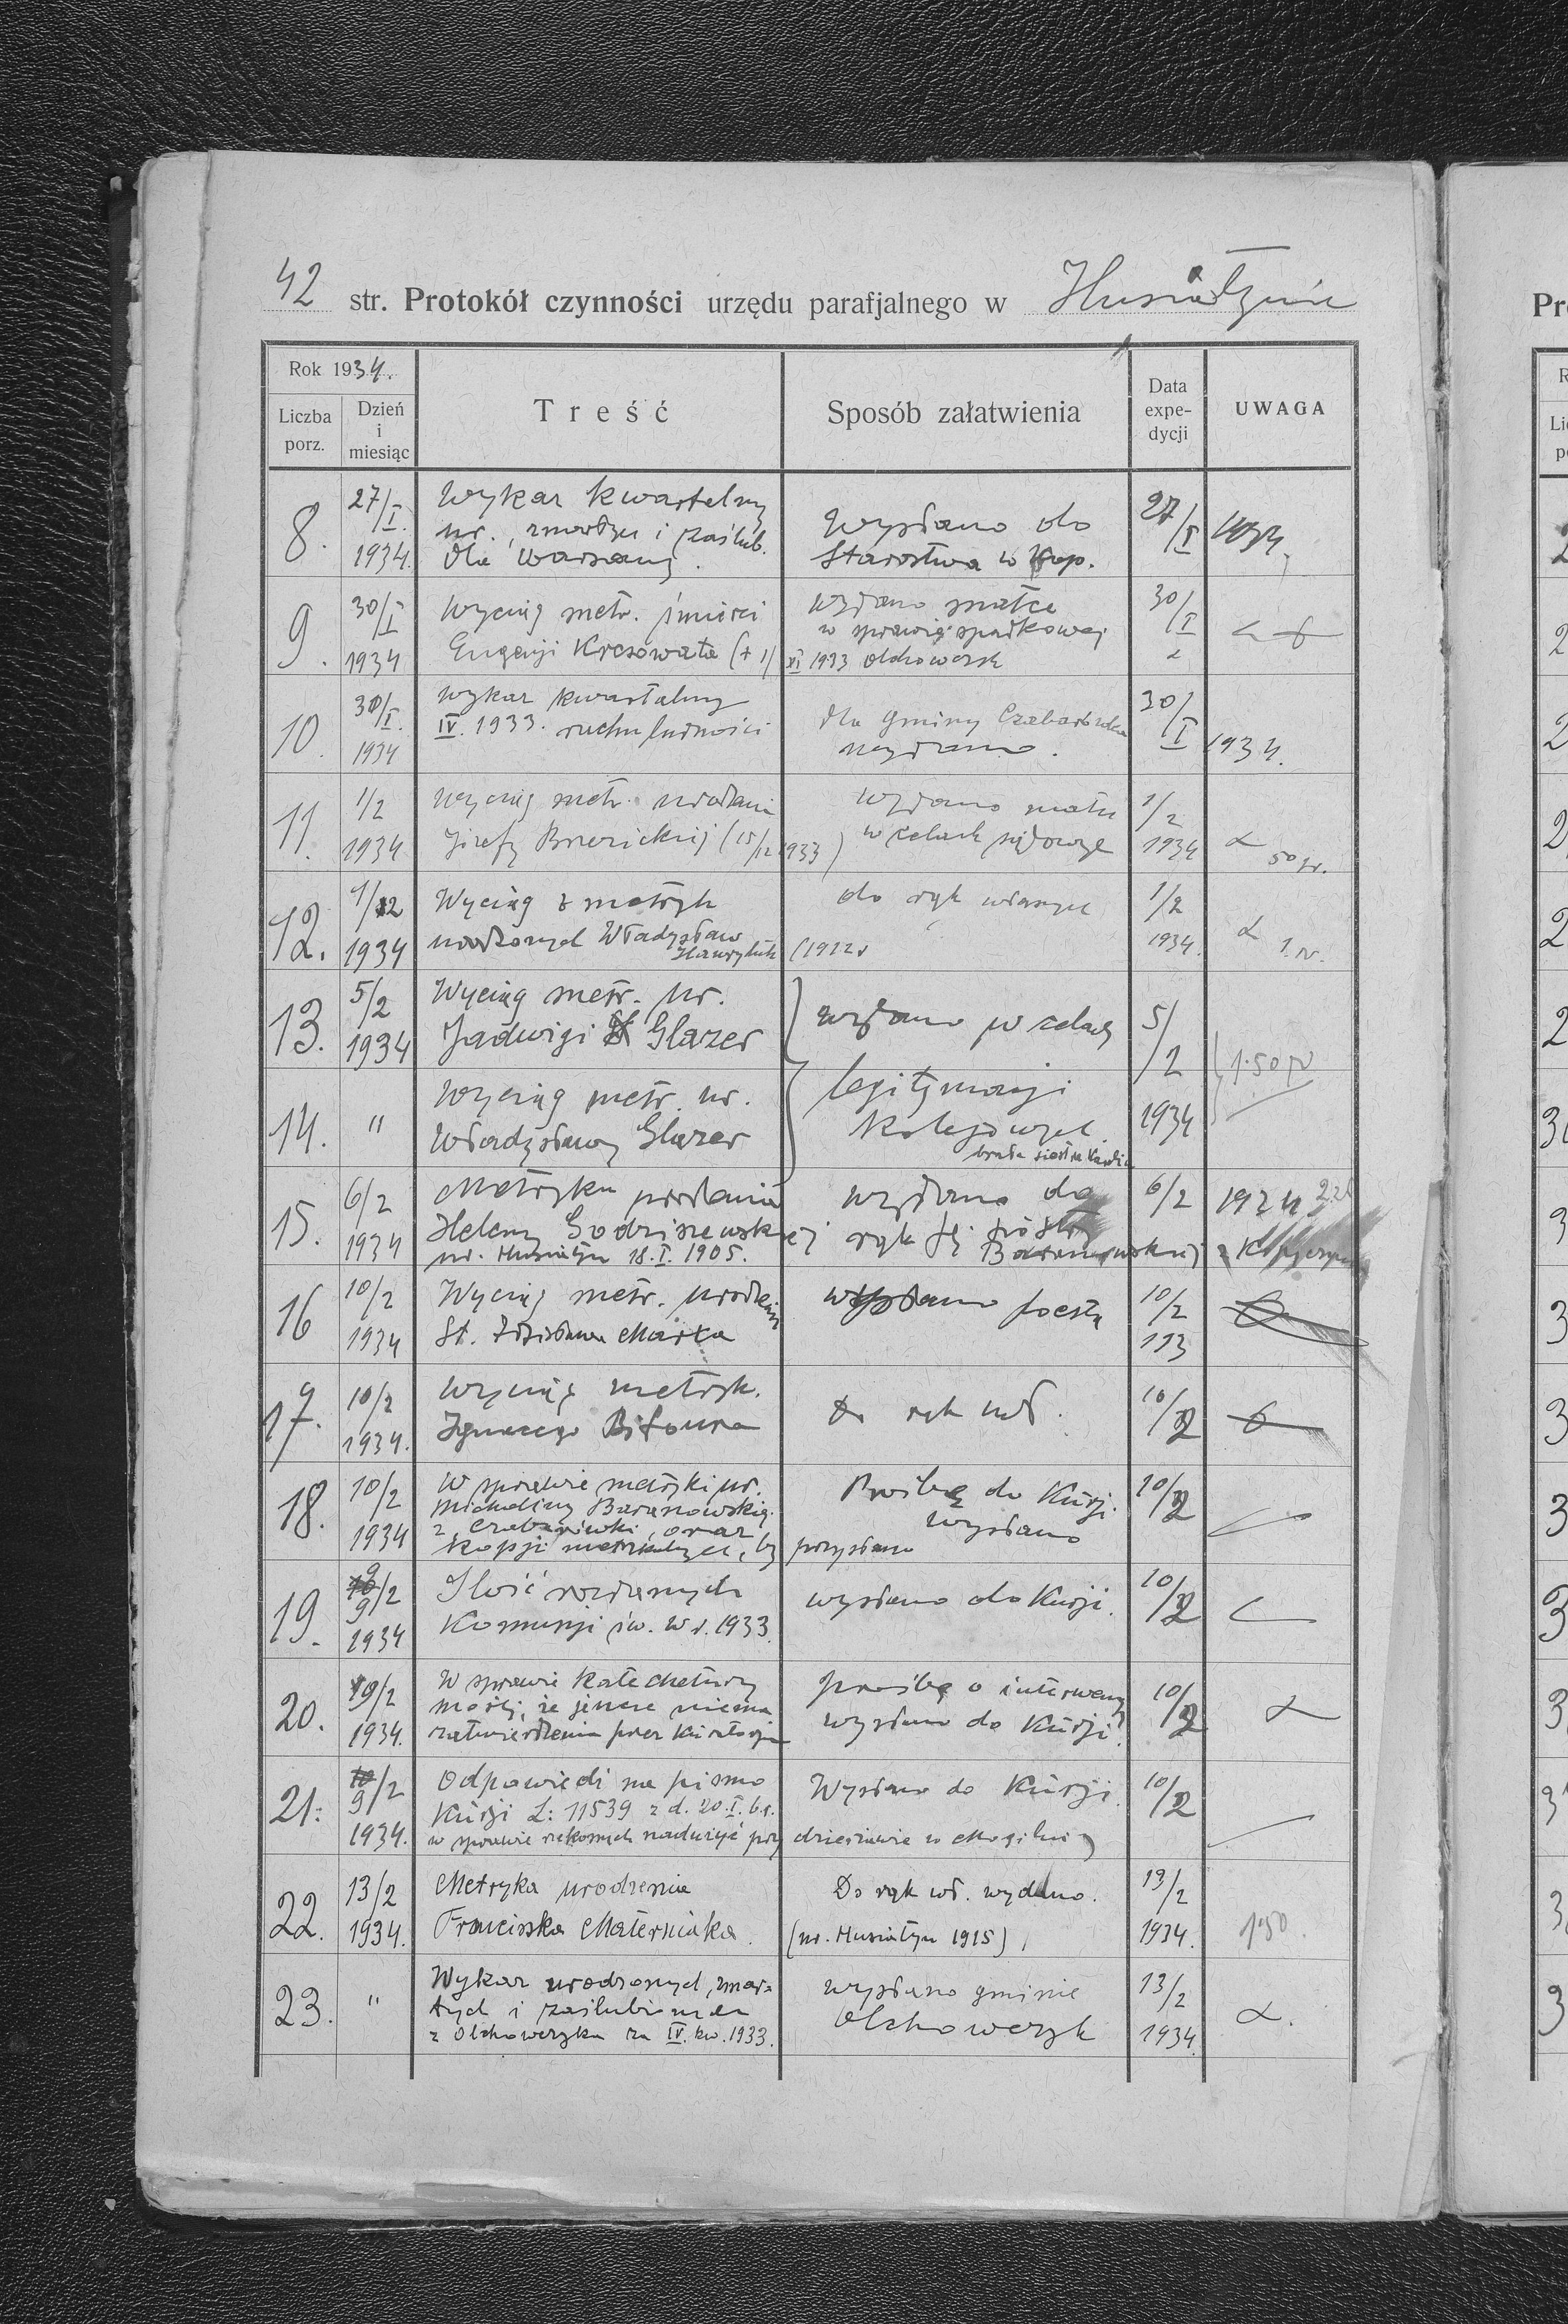 42 str. Protokół czynności urzędu parafjalnego w Husiatynie
Rok 1934.
Liczba porz.
Dzień i miesiąc
Treść
Sposób załatwienia
Data expe-dycji
UWAGA
8. 27/I. 1934.
Wykaz kwartalny
ur., zmarłych i zaślub.
dla Warszawy.
Wysłano do
Starostwa w Kop.
27/I 1934.
9. 30/I 1934
Wyciąg metr. śmierci
Eugenji Kresowata (+ 1/XI 1933 Olchowczyk
Wydano matce
w sprawie spadkowej
30/I
10. 30/I. 1934
Wykaz kwartalny
IV. 1933. ruchu ludności
dla gminy Czabarówka
wysłano.
30/I 1934.
11. 1/2 1934
Wyciąg metr. urodzenia
Józefy (15/12 1933)
wydano matce
w celach sądowych
1/2 1934
50 gr.
12. 1/2 1934
Wyciąg z metryk
urodzonych Władysław
Hawryluk (1912 r
do rąk własnych
1/2 1934.
13. 5/2 1934
Wyciąg metr. ur.
Jadwigi Glazer
14. "
Wyciąg metr. ur.
Władysławy Glazer
wydano w celach
legitymacji
kolejowych.
brała siostra
5/2 1934
1.50
15. 6/2 1934
Metryka urodzenia
Heleny Godziszewskiej
ur. Husiatyn 18.I.1905.
wydano do
rąk jej siostry
Baranowskiej z
6/2 1934
16 10/2 1934
Wyciąg metr. urodzenia
St. Zdzisława Marka
wysłano pocztą
10/2
113
17. 10/2 1934.
Wyciąg metryk.
Ignacego
Do rąk wł.
10/2
18. 10/2 1934
W sprawie metryki ur.
Michaliny Baranowskiej
z Czabarówki, oraz
kopji metrykalnych, by przysłano
Prośbę do Kurji.
wysłano
10/2
19. 9/2 1934
Ilość rozdanych
Komunji św. w r. 1933.
wysłano do Kurji.
10/2
20. 9/2 1934.
W sprawie katechetury
mojej, że jeszcze niema
zatwierdzenia przez Kuratorjum
Prośbę o interwencję
wysłano do Kurji.
10/2
21. 9/2 1934.
Odpowiedź na pismo
Kurji L: 11539 z d. 20.I. b.r.
w sprawie rzekomych nadużyć przy dzierżawie w Mogilnicy
Wysłano do Kurji.
10/2
22. 13/2 1934.
Metryka urodzenia
Franciszka Materniaka.
Do rąk wł. wydano.
(ur. Husiatyn 1915)
13/2 1934.
1.50.
23. "
Wykaz urodzonych, zmar-
łych i zaślubionych
z Olchowczyka za IV. kw. 1933.
wysłano gminie
Olchowczyk
13/2 1934.